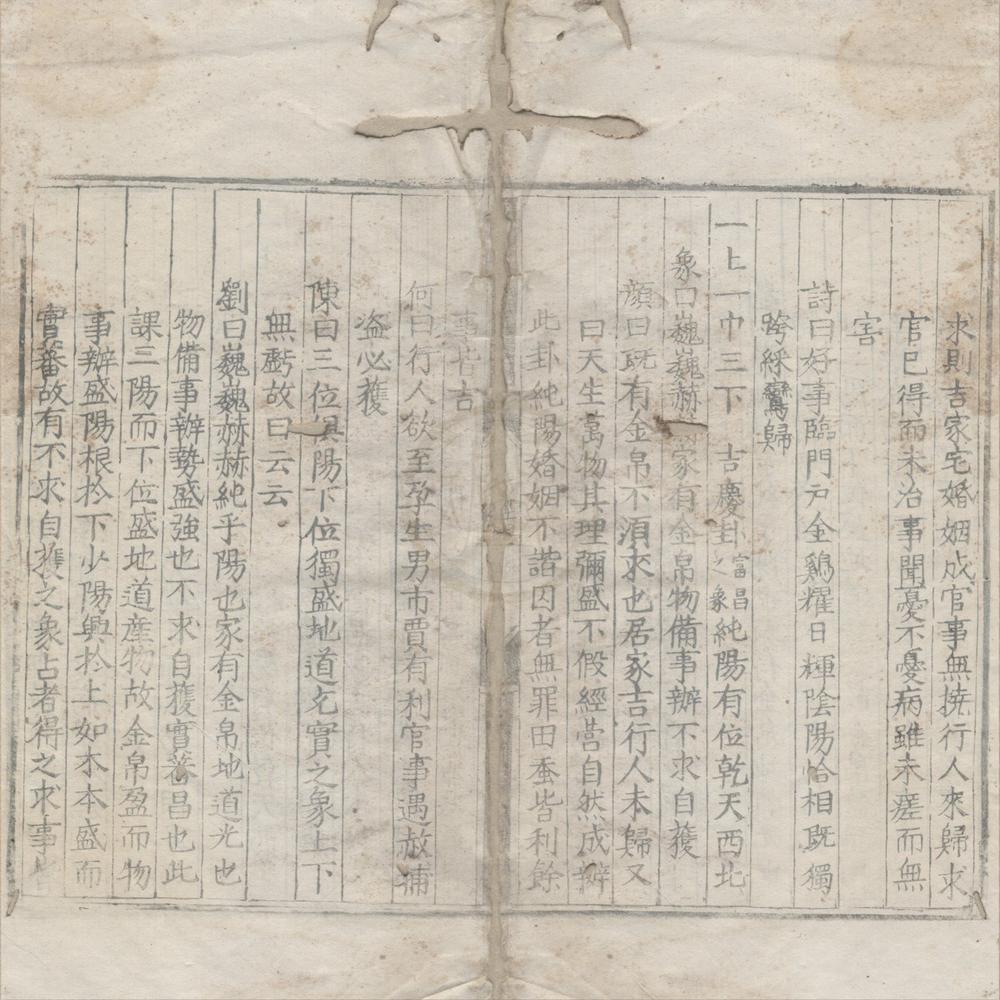 求則吉家宅婚姻成官事無撓行人來歸求
官已得而未治事聞憂不憂病雖未瘥而無
害
詩曰好事臨門戶金鷄耀日輝陰陽恰相旣獨
跨綵鸞歸
一上一中三下 吉慶卦富昌之象純陽有位乾天西北
象曰巍巍赫家有金帛物備事辦不求自獲
顔曰旣有金帛不湏求也居家吉行人未歸又
曰天生萬物其理彌盛不假經營自然成辦
此卦純陽婚姻不諧囚者無罪田蚕皆利餘
事皆吉
何曰行人欲至孕生男市賈有利官事遇赦逋
盗必獲
陳曰三位俱陽下位獨盛地道充實之象上下
無虧故曰云云
劉曰巍巍赫赫純乎陽也家有金帛地道光也
物備事辦勢盛強也不求自獲實蕃昌也此
課三陽而下位盛地道產物故金帛盈而物
事辦盛陽根於下少陽興於上如木本盛而
實蕃故有不求自獲之象占者得之求事